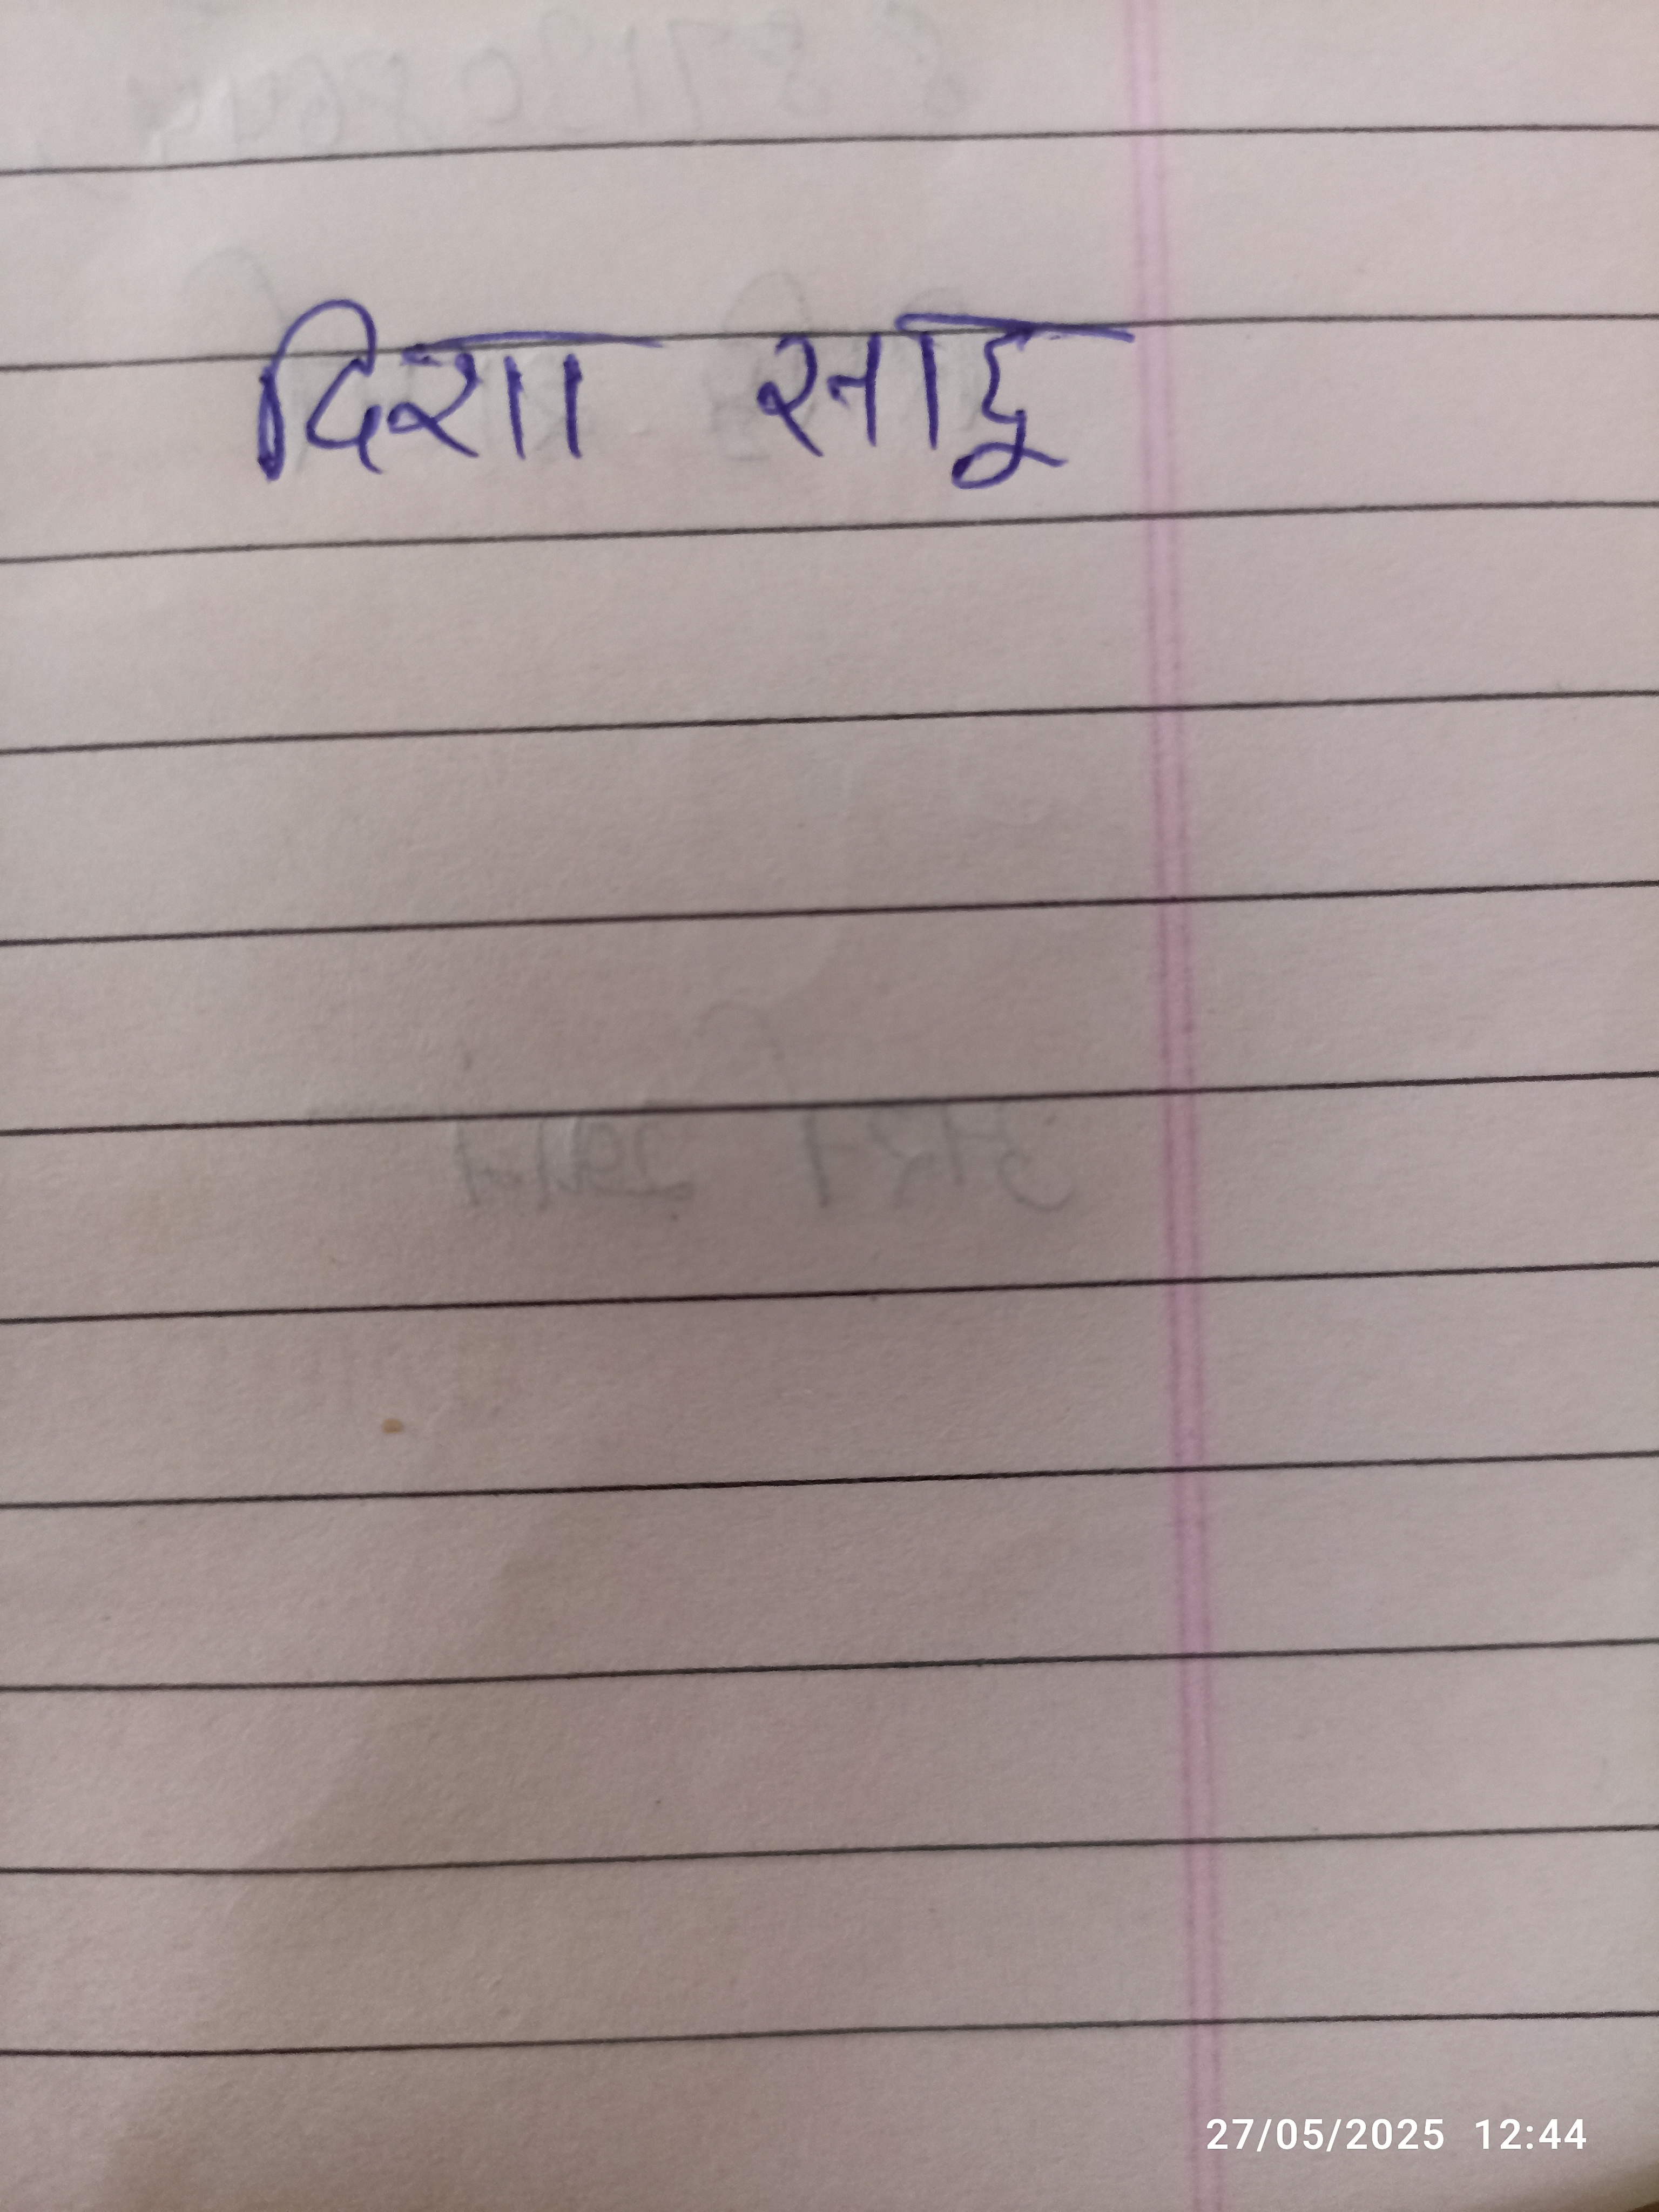 दिशा साहू
27/05/2025 12:44